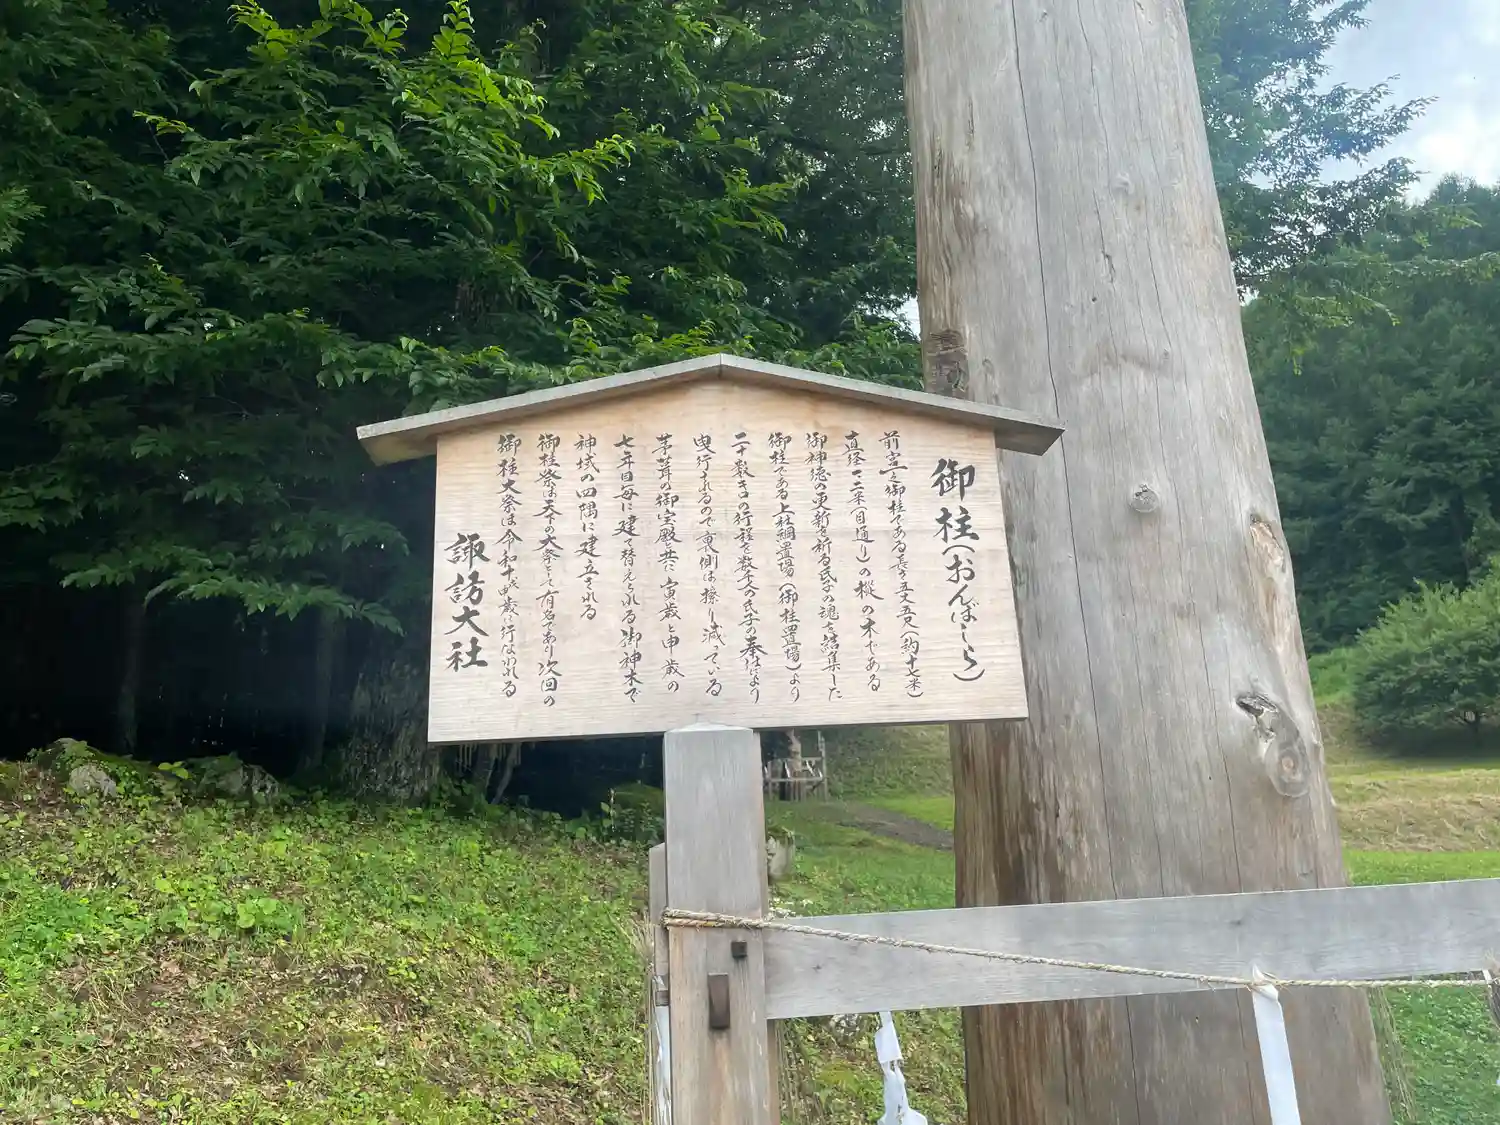 御柱(おんばしら)
前宮之御柱である長さ五丈五尺(約十七米)
直径一、二米(目通り)の樅の木である
御神徳の更新を祈る氏子の魂を結集した
御柱である上社綱置場(御柱置場)より
二十数キロの行程を数千人の氏子の奉仕により
曳行されるので裏側は擦り減っている
茅葺の御宝殿と共に寅歳と申歳の
七年目毎に建て替えられる御神木で
神域の四隅に建立される
御柱祭は天下の大祭として有名であり次回の
御柱大祭は令和十年申歳に行なわれる
諏訪大社